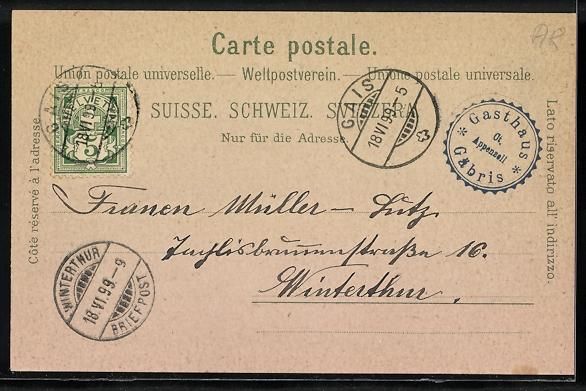 AR
Carte postale.
Union postale universelle. — Weltpostverein. — Unione postale universale.
SUISSE. SCHWEIZ. SVIZZERA.
Nur für die Adresse.
Côté réservé à l'adresse.
Lato riservato all' indirizzo.
HELVETIA
5
GAIS
18 VI 99
GAIS
18 VI 99 5
Gasthaus
Ct. Appenzell
Gäbris
Müller – Lutz
16.
Winterthur.
WINTERTHUR
18 VI 99 - 9
BRIEFPOST